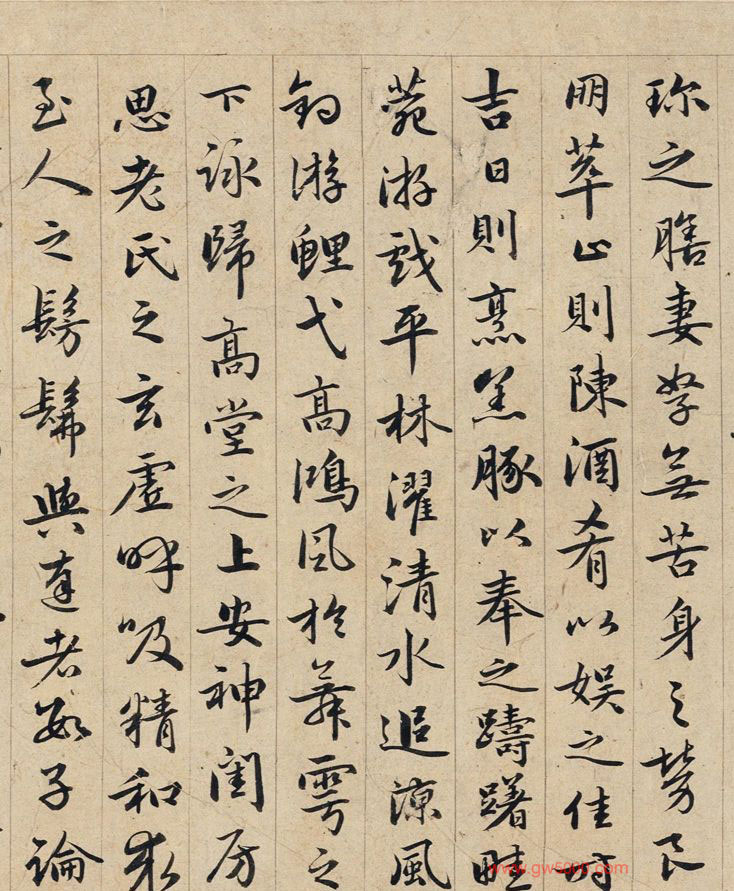 珎之膳妻孥無苦身之勞良
朋萃止則陳酒肴以娱之佳時
吉日則烹羔豚以奉之躊躇畦
菀游戲平林濯清水追涼風
釣游鯉弋高鴻風於舞雩之
下詠歸高堂之上安神閨房
思老氏之玄虚呼吸精和求
至人之髣髴與達者數子論
www.gw5000.com